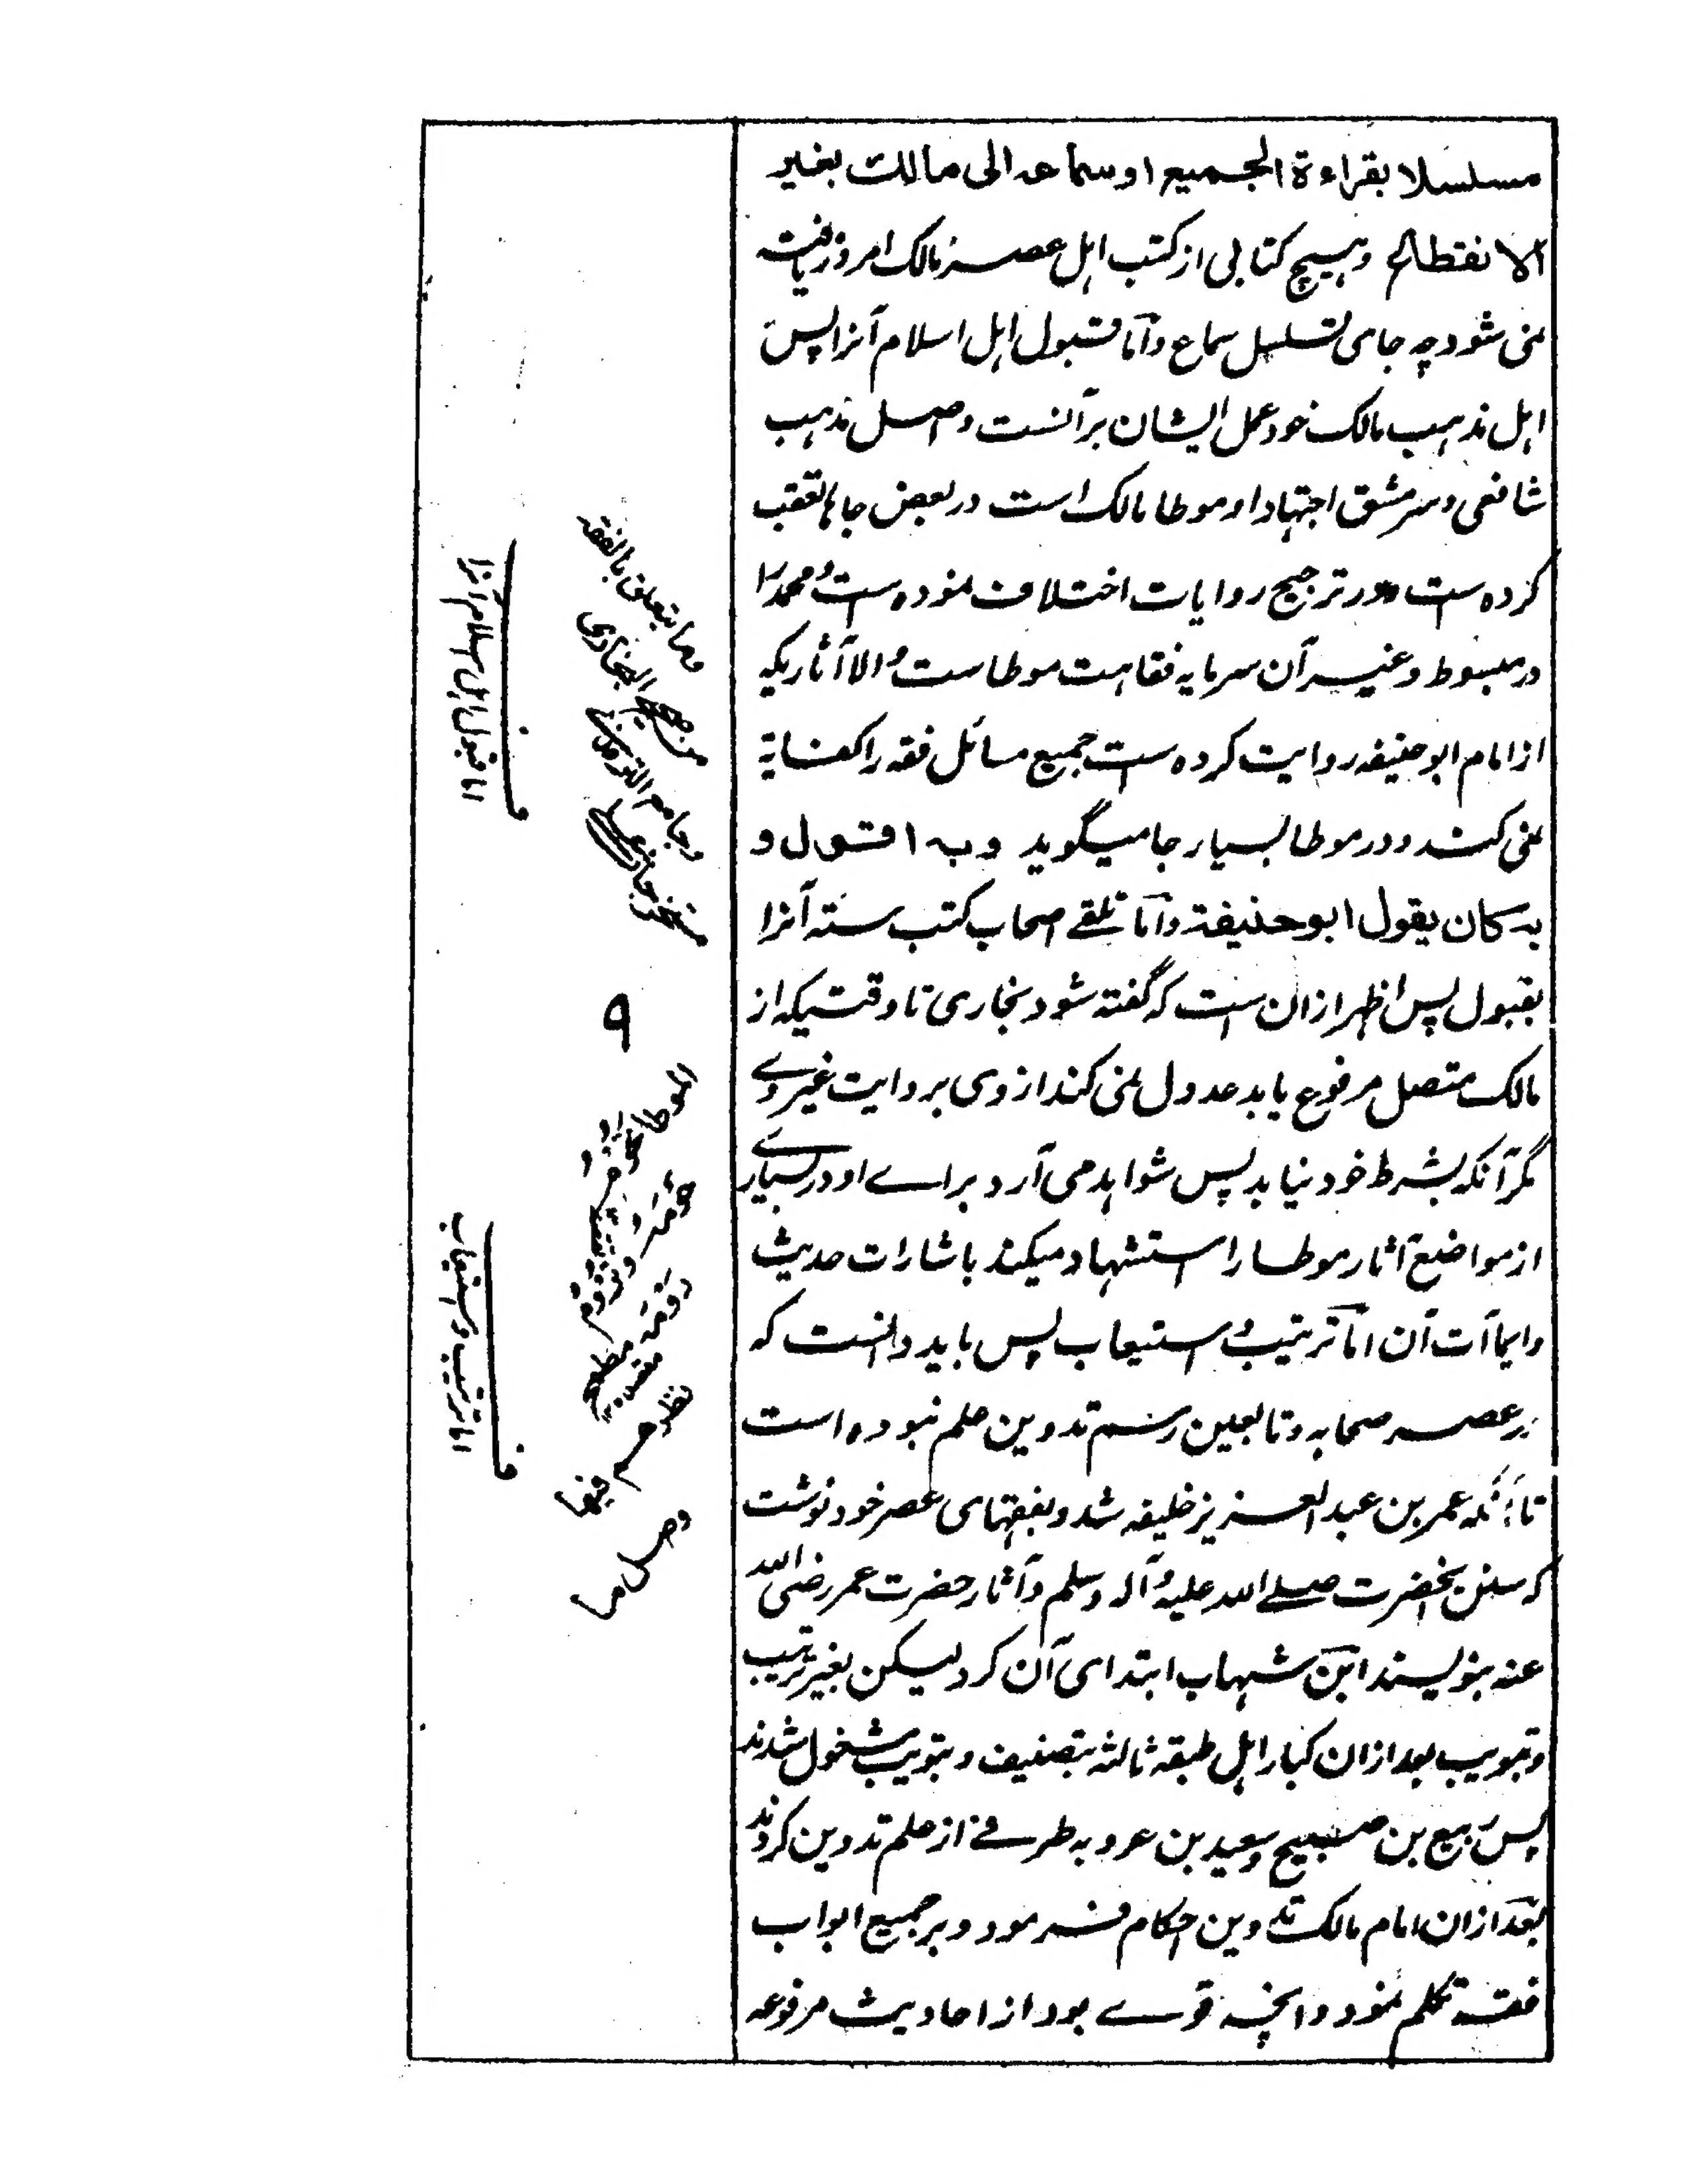 مسلسلا بقراءة الجميع او سماعه الى مالك بغير
الانقطاع وہیچ کتابی از کتب اہل عصر مالک امروز یافتہ
نمی شود چہ جای تسلسل سماع و اما قبول اہل اسلام آنرا پس
اہل مذہب مالک خود عمل ایشان بر آنست و اصل مذہب
شافعی و سرمشق اجتہاد او موطا مالک است در بعض جاہا تعقب
کردہ است و در ترجیح روایات اختلاف نمودہ است و محمد را
در مبسوط و غیر آن سرمایہ فقاہت موطاست و الا آثاریکہ
از امام ابو حنیفہ روایت کردہ است جمیع مسائل فقہ را کفایۃ
نمی کند و در موطا بسیار جا میگوید وبه اقول و
به كان يقول ابو حنيفة و اما تلقے اصحاب کتب ستہ آنرا
بقبول پس اظہر از ان ست کہ گفتہ شود بخاری تا وقتیکہ از
مالک متصل مرفوع یابد عدول نمی کند از وی بروایت غیر وے
مگر آنکہ بشرط خود نیابد پس شواہد می آرد براے او در بسیارے
از مواضع آثار موطا را استشہاد میکند باشارات حدیث
و ایماآت آن اما ترتیب و استیعاب پس باید دانست کہ
در عصر صحابہ و تابعین رسم تدوین علم نبودہ است
تا آنکہ عمر بن عبد العزیز خلیفہ شد و بفقہای عصر خود نوشت
کہ سنن آنحضرت صلے اللہ علیہ و آلہ و سلم و آثار حضرت عمر رضی اللہ
عنہ بنویسند ابن شہاب ابتدای آن کرد لیکن بغیر ترتیب
و تبویب بعد از ان کبار اہل طبقہ ثالثہ بتصنیف و تبویب مشغول شدند
پس ربیع بن صبیح و سعید بن عروبہ طرفے از علم تدوین کردند
بعد از ان امام مالک تدوین احکام فرمود و بر جمیع ابواب
فقہ تکلم نمود و آنچہ قوے بود از احادیث مرفوعہ
وما يتعلق بالفقه
من صحيح البخاري
وجامع الترمذي
۹
ف
اما قبول اہل اسلام آنرا
ف
اما ترتیب و استیعاب